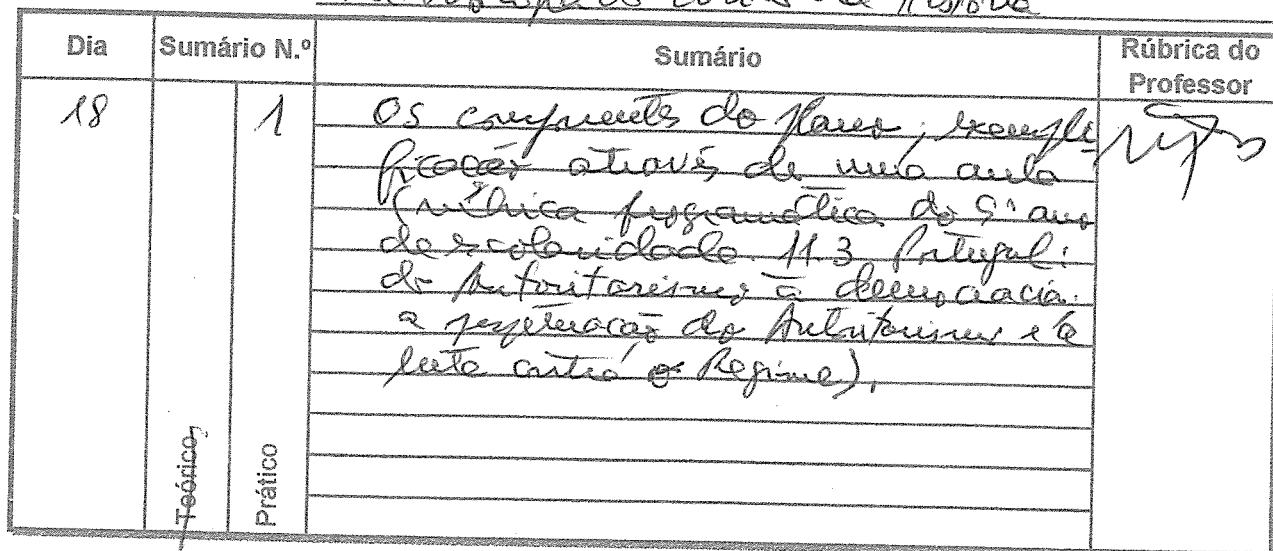 de História
Dia Sumário N.º Sumário Rúbrica do Professor
18 1 Os componentes do plano; exempli-
ficação através de uma aula
(rúbrica programática do 9º ano
de escolaridade 11.3 Portugal:
do Autoritarismo à democracia.
a perpetuação do Autoritarismo e a
luta contra o Regime).
Teórico
Prático